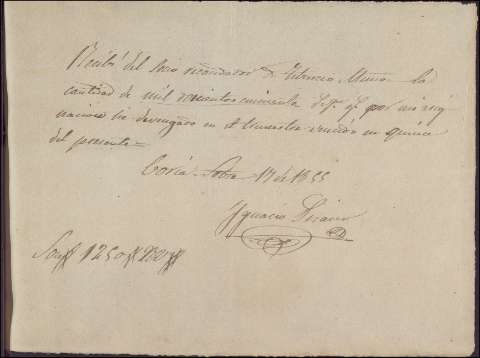 Recibí del Socio recaudador D. Tiburcio Muñoz la
cantidad de mil doscientos cincuenta r.s v.n q.e por mi asig
nacion he devengado en el trimestre vencido en quince
del presente =
Coria 17 de 1855
Ygnacio
Son 1250